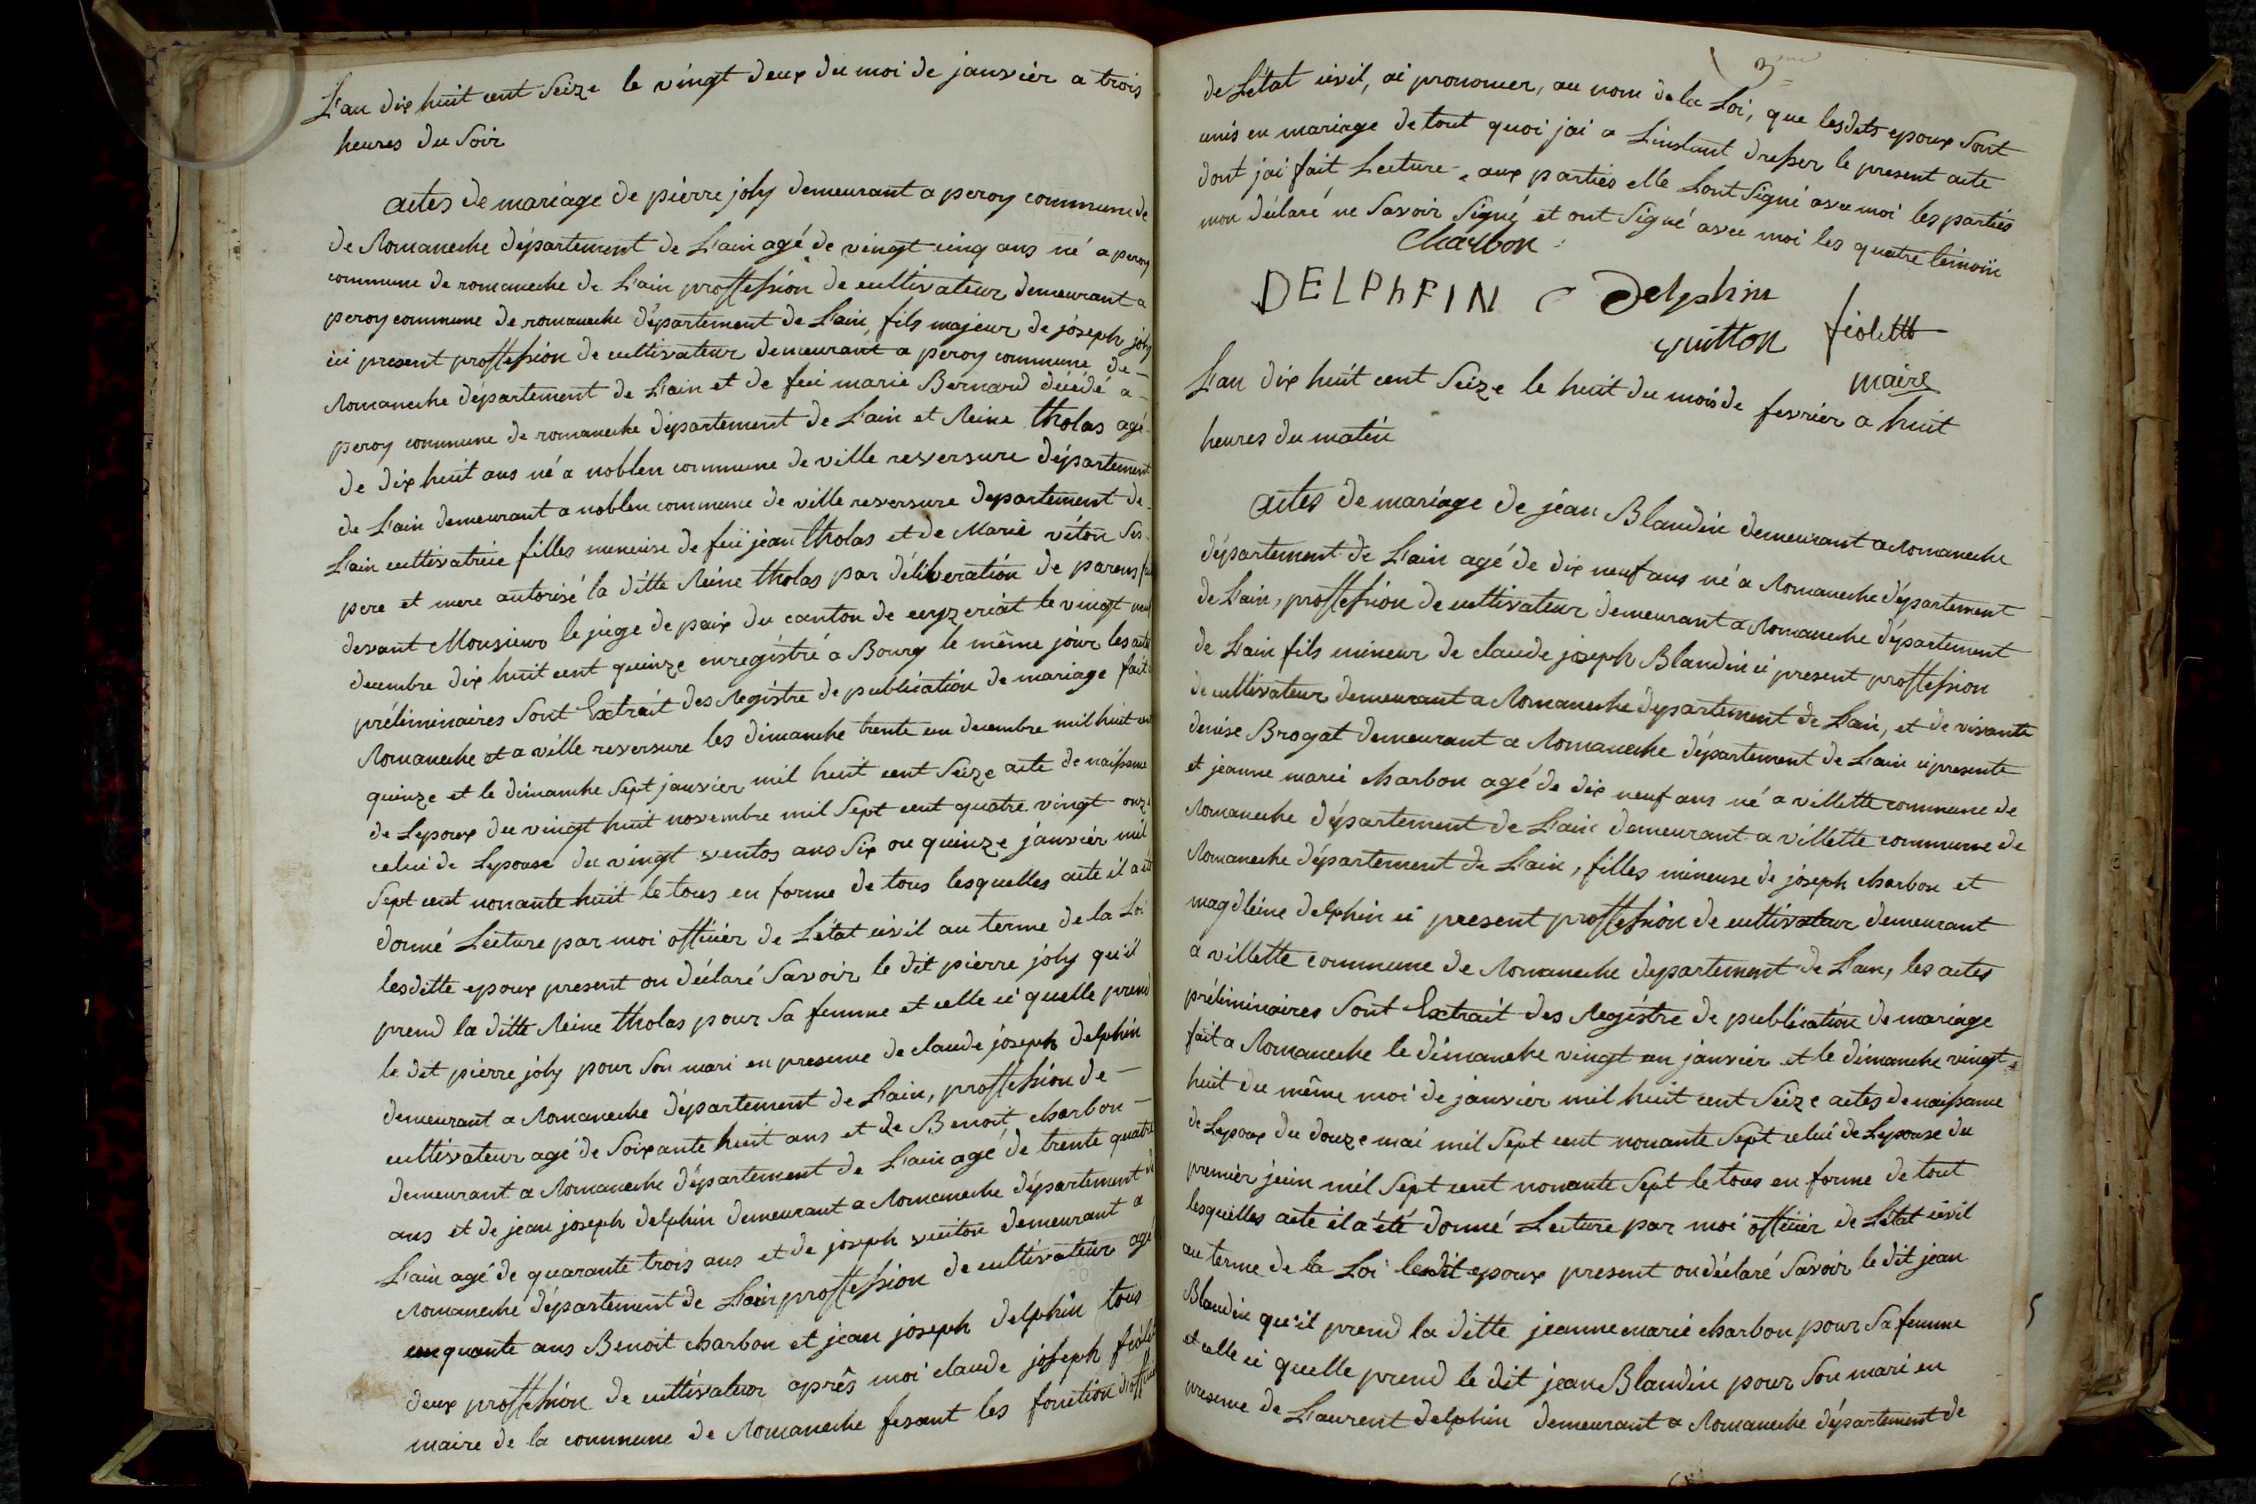 L'an dix huit cent Seize le vingt deux du moi de janvier a trois
heures du Soir
actes de mariage de pierre joly demeurant a peroy commune de
de Romaneche département de L'ain agé de vingt cinq ans né a peroy
commune de romaneche de L'ain proffession de cultivateur demeurant a
peroy commune de romaneche département de L'ain, fils majeur de joseph joly
ici present proffession de cultivateur demeurant a peroy commune de
Romaneche département de L'ain et de feü marie Bernard décédé a
peroy commune de romaneche département de L'ain et Reine tholas agé
de dix huit ans né a noblen commune de ville reversure département
de L'ain demeurant a noblen commune de ville reversure departement de
L'ain cultivatrice filles mineuse de feü jean tholas et de Marie viton Ses
pere et mere autorisé la ditte Reine tholas par déliberation de parens
devant Monsieur le juge de paix du canton de ceyzeriat le vingt neuf
decembre dix huit cent quinze enregistré a Bourg le même jour les actes
préliminaires Sont Extrait des Registre de publication de mariage fait a
Romaneche et a ville reversure les dimanche trente un decembre mil huit cent
quinze et le dimanche Sept janvier mil huit cent Seize acte de naissance
de Lepoux du vingt huit novembre mil Sept cent quatre vingt onze
celui de Lepouse du vingt ventos ans Six ou quinze janvier mil
Sept cent nonante huit le tous en forme de tous lesquelles acte il a été
donné Lecture par moi officier de Létat civil au terme de la Loi
lesditte epoux present on déclaré Savoir le dit pierre joly qu'il
prend la ditte Reine tholas pour Sa femme et celle ci quelle prend
le dit pierre joly pour Son mari en presence de claude joseph delphin
demeurant a Romaneche département de L'ain, proffession de
cultivateur agé de Soixante huit ans et de Benoit charbon
demeurant a Romaneche département de L'ain agé de trente quatre
ans et de jean joseph delphin demeurant a Romaneche département de
L'ain agé de quarante trois ans et de joseph vuiton demeurant a
Romaneche département de L'ain proffession de cultivateur agé
cinquante ans Benoit charbon et jean joseph delphin tous
deux proffession de cultivateur aprês moi claude joseph fiolet
maire de la commune de Romaneche fesant les fonction d'officier
3me
de Létat civil, ai prononcer, au nom de la Loi, que lesdits epoux Sont
unis en mariage de tout quoi jai a Linstant dresser le present acte
dont jai fait Lecture aux parties elle Lont Signé avec moi les parties
mon déclaré ne Savoir Signé et ont Signé avec moi les quatre témoin
Charbon
DELPhFIN Delphin
vuitton fiolet
maire
L'an dix huit cent Seize le huit du mois de fevrier a huit
heures du matin
actes de mariage de jean Blandin demeurant a Romaneche
département de L'ain agé de dix neuf ans né a Romaneche département
de L'ain, proffession de cultivateur demeurant a Romaneche département
de L'ain fils mineur de claude joseph Blandin ci present proffession
de cultivateur demeurant a Romaneche departement de L'ain, et de vivante
denise Brogat demeurant a Romaneche département de L'ain ci presente
et jeanne marie charbon agé de dix neuf ans né a villette commune de
Romaneche département de L'ain demeurant a villette commune de
Romaneche département de L'ain, filles mineuse de joseph charbon et
magdleine delphin ci present proffession de cultivateur demeurant
a villette commune de Romaneche departement de L'ain, les actes
préliminaires Sont Extrait des Registre de publication de mariage
fait a Romaneche le dimanche vingt un janvier et le dimanche vingt
huit du même moi de janvier mil huit cent Seize actes de naissance
de Lepoux du douze mai mil Sept cent nonante Sept celui de Lepouse du
premier juin mil Sept cent nonante Sept le tous en forme de tout
lesquelles acte il a été donné Lecture par moi officier de Létat civil
au terme de la Loi lesdit epoux present on déclaré Savoir le dit jean
Blandin qu'il prend la ditte jeanne marie charbon pour Sa femme
et celle ci quelle prend le dit jean Blandin pour Son mari en
presence de Laurent delphin demeurant a Romaneche département de